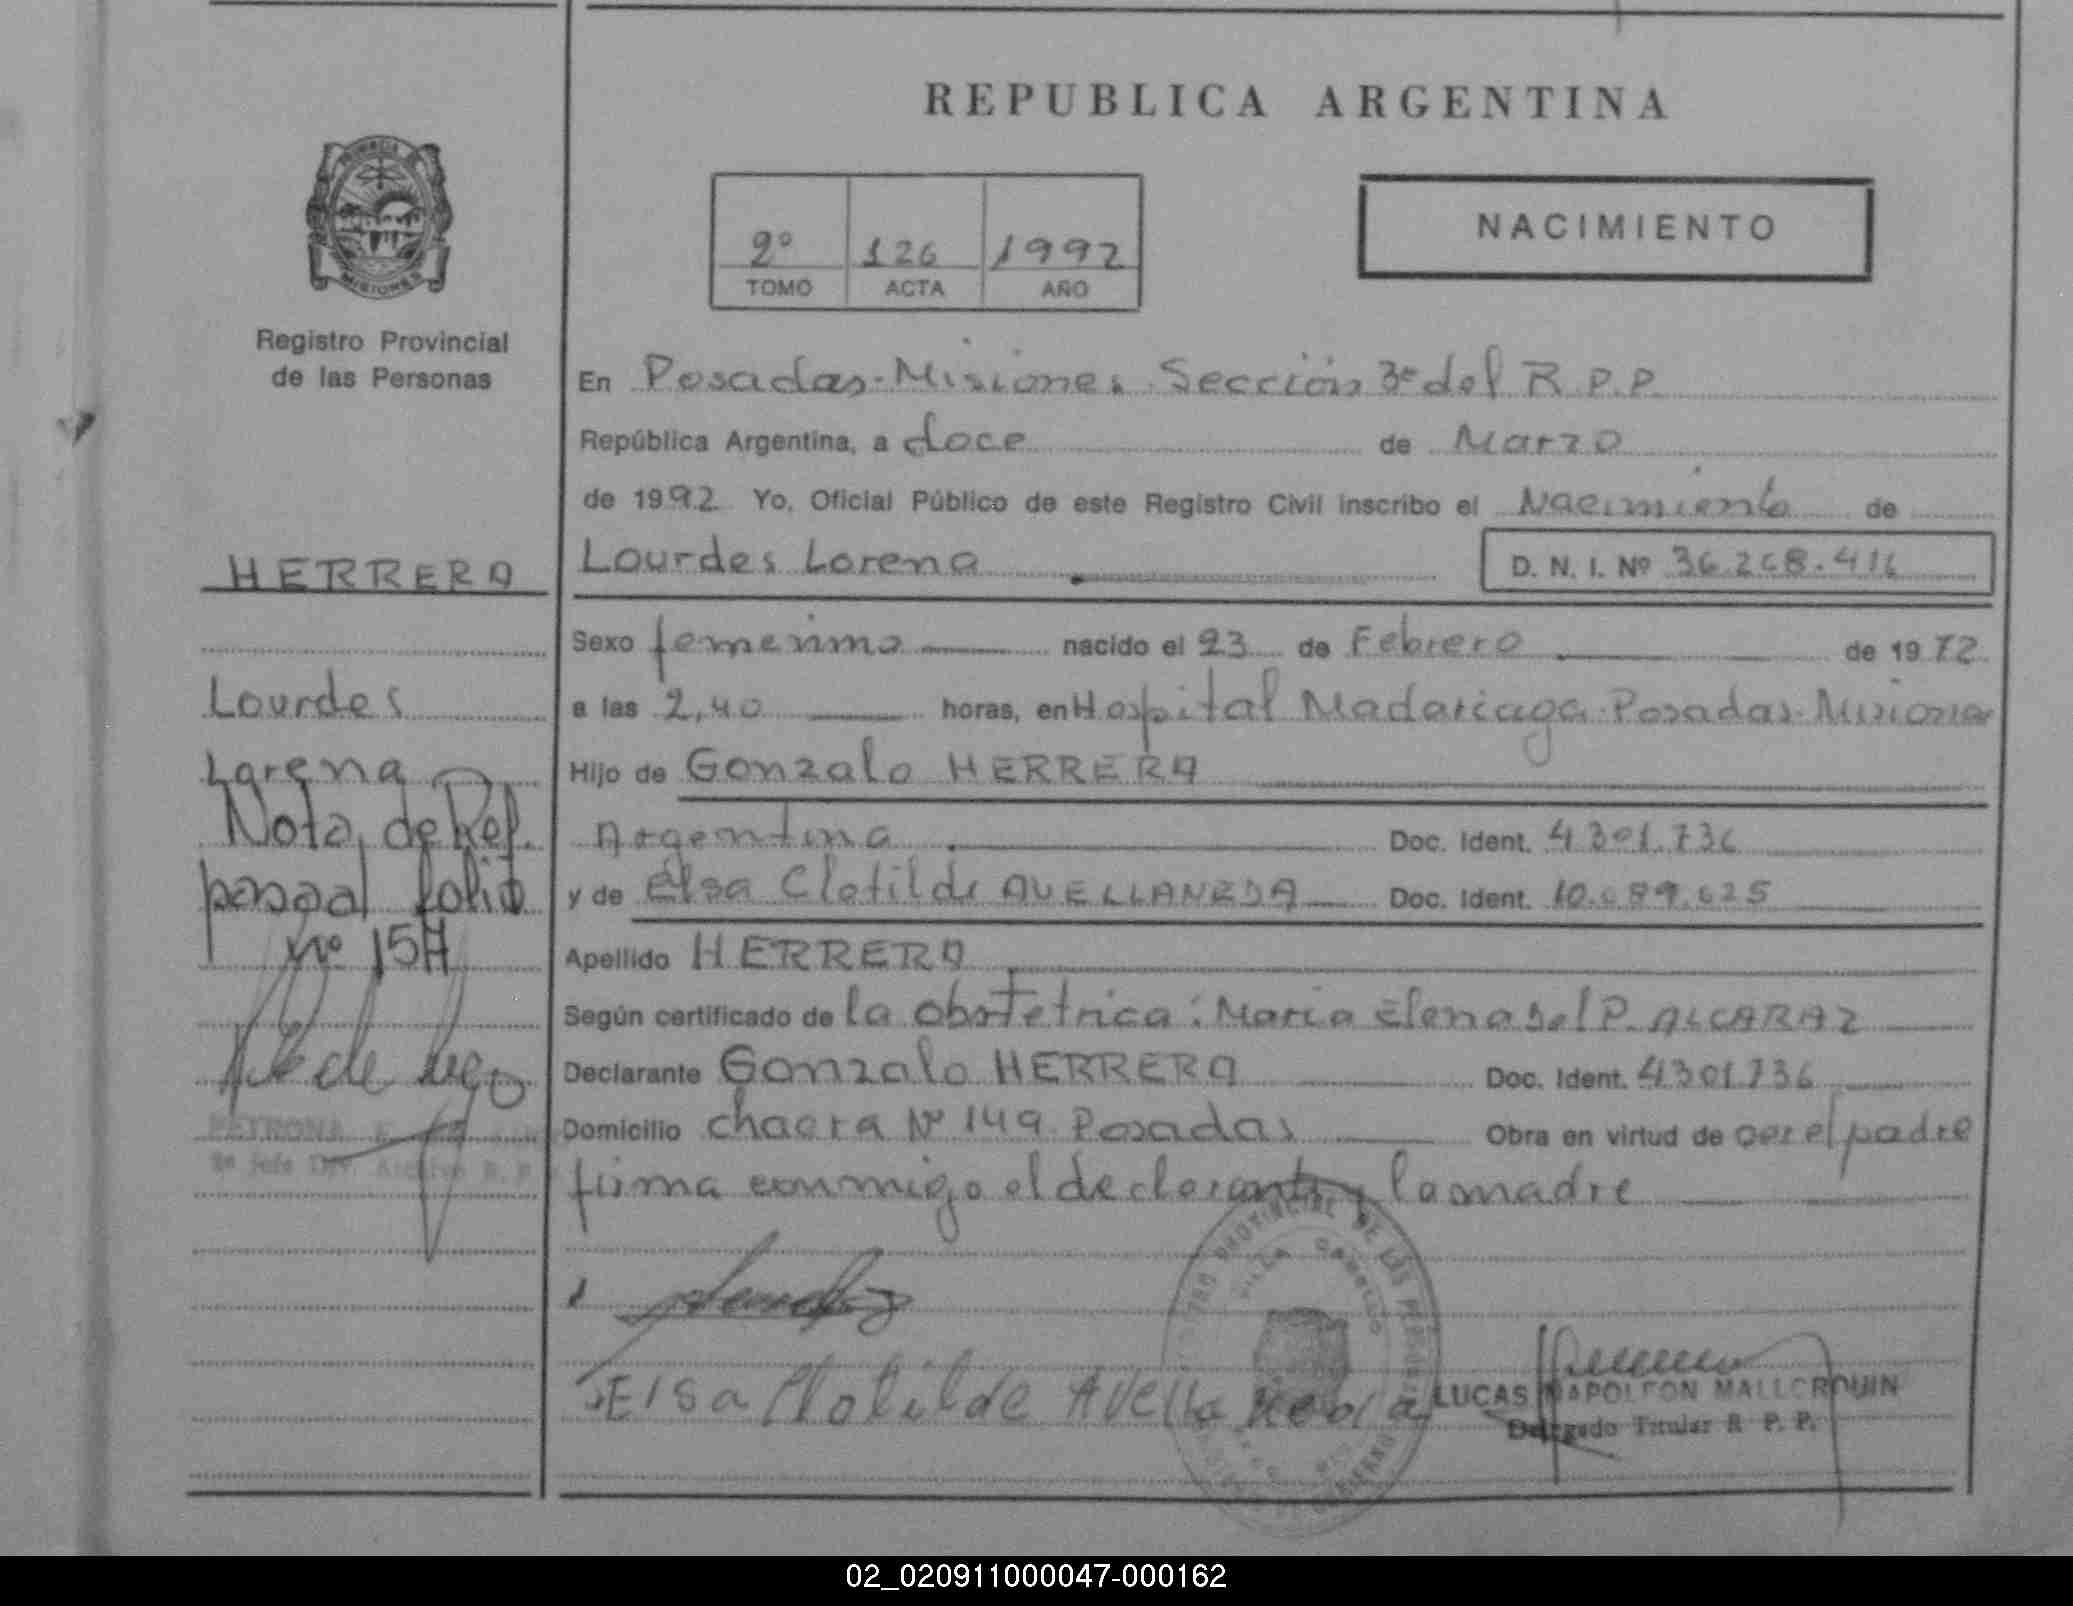 REPUBLICA ARGENTINA
PROVINCIA DE
MISIONES
Registro Provincial
de las Personas
2º 126 1992
TOMO ACTA AÑO
NACIMIENTO
En Posadas-Misiones. Sección 3º del R.P.P.
República Argentina, a doce de Marzo
de 1992. Yo, Oficial Público de este Registro Civil inscribo el Nacimiento de
HERRERA
Lourdes Lorena
D. N. I. Nº 36.268.416
Sexo femenino nacido el 23 de Febrero de 1972
Lourdes
a las 2,40 horas, en Hospital Madariaga-Posadas-Misiones
Lorena
Hijo de Gonzalo HERRERA
Nota de Ref.
Argentina Doc. Ident. 4301.736
pasa al folio
y de Elsa Clotilde AVELLANEDA Doc. Ident. 10.089.625
nº 157
Apellido HERRERA
Según certificado de la obstetrica: Maria Elena del P. ALCARAZ
Declarante Gonzalo HERRERA Doc. Ident. 4301736
PETRONA
Domicilio chacra Nº 149 Posadas Obra en virtud de ser el padre
2º Jefe Div. Archivo R. P.
firma conmigo el declarante y la madre
REGISTRO PROVINCIAL DE LAS PERSONAS
VILLA CABELLO
Elsa Clotilde Avellaneda
LUCAS NAPOLEON MALLORQUIN
Delegado Titular R. P. P.
02_020911000047-000162